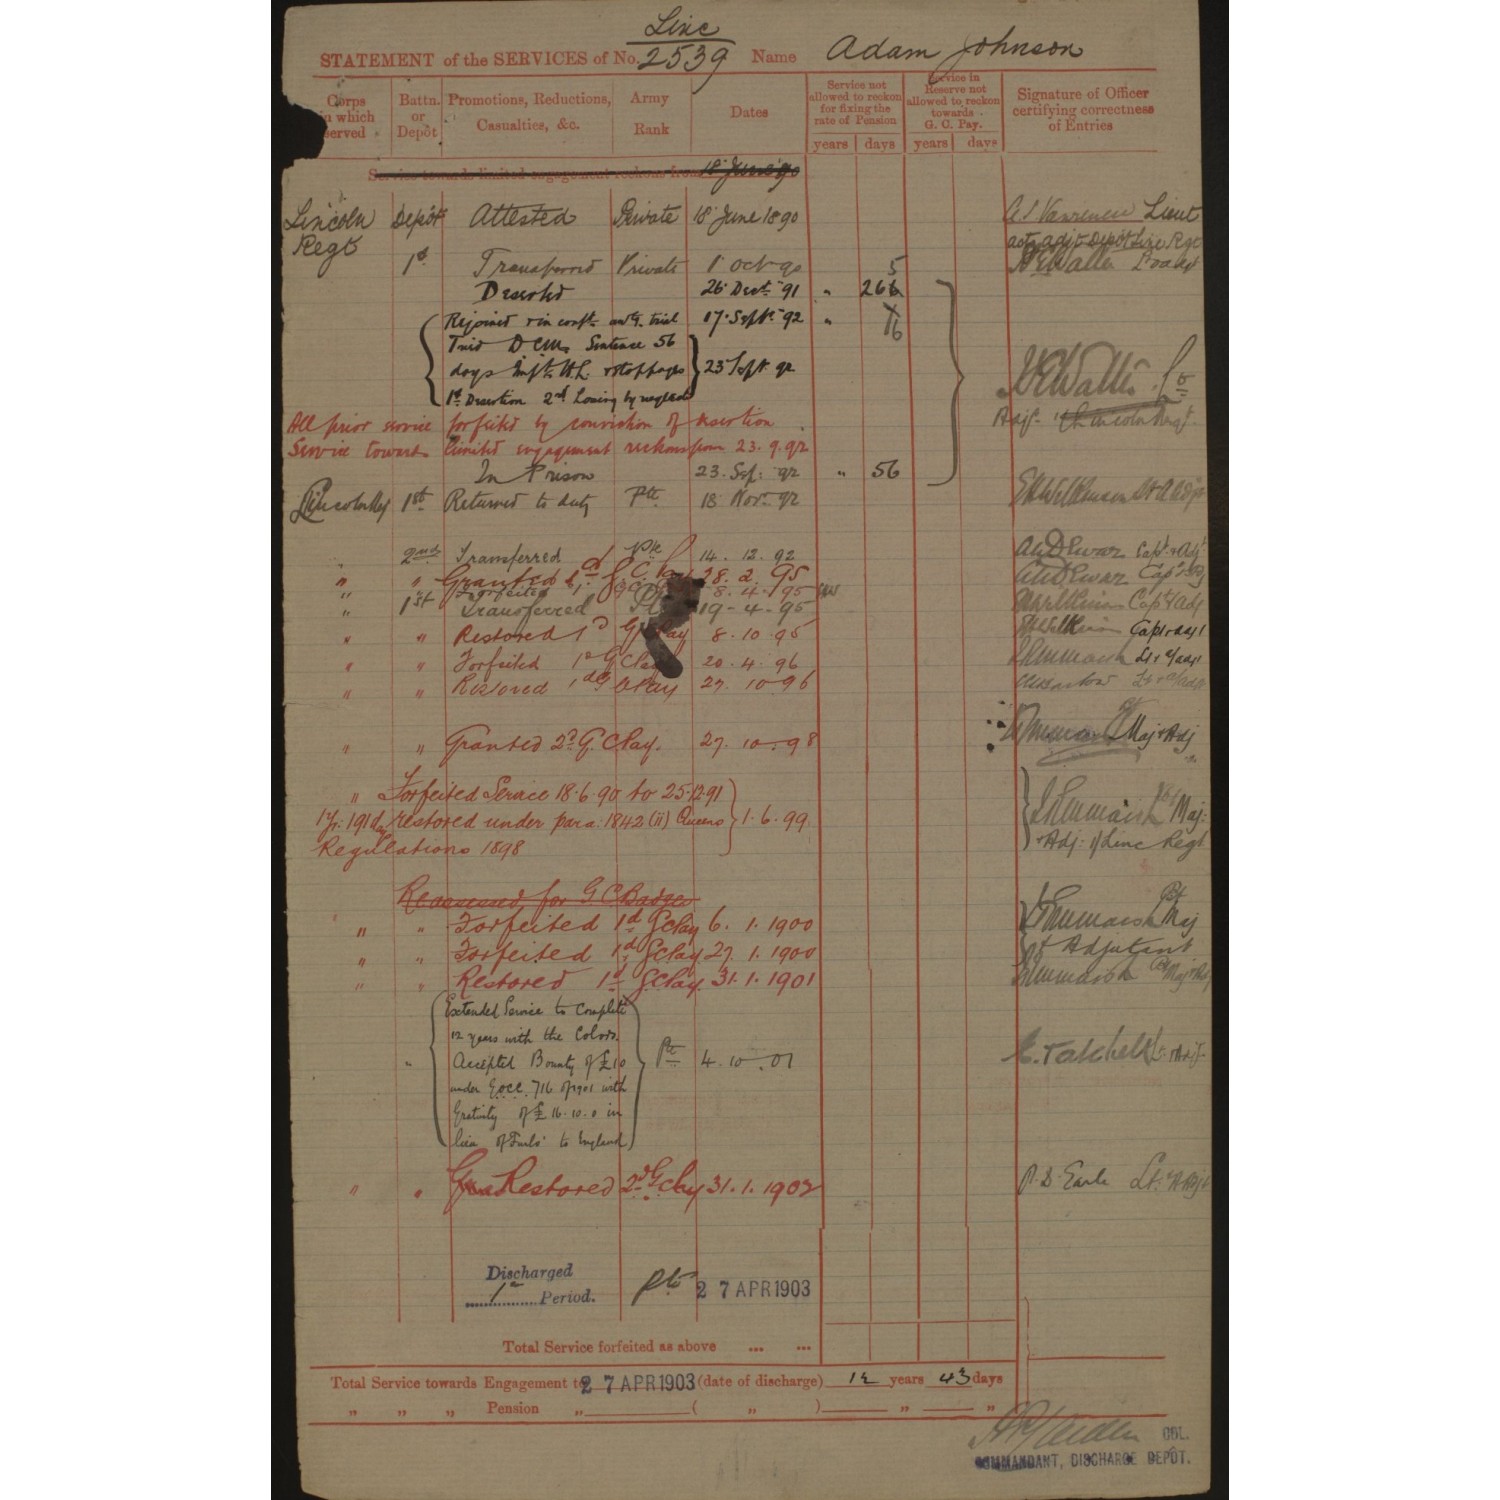 Linc
STATEMENT of the SERVICES of No. 2539 Name Adam Johnson
Corps in which served
Battn. or Depôt
Promotions, Reductions, Casualties, &c.
Army Rank
Dates
Service not allowed to reckon for fixing the rate of Pension
Service in Reserve not allowed to reckon towards G. C. Pay.
Signature of Officer certifying correctness of Entries
years days years days
Service towards limited engagement reckons from 18 June 90
Lincoln Depôt Attested Private 18 June 1890 Lieut
Regt actg adjt Depôt Linc Regt
1st Transferred Private 1 Oct 90
5
Deserted 26 Dect 91 " 266
Rejoined & in conft awtg trial 17 Sept 92 " 16
Tried DCM Sentence 56
days Impt H.L. & stoppages 23 Sept 92
1st Desertion 2nd Losing by neglect
H E Wallis
Adj. Lincoln Regt.
All prior service forfeited by conviction of desertion
Service towards limited engagement reckons from 23.9.92
In Prison 23 Sep: 92 " 56
Lincoln Reg 1st Returned to duty Pte 18 Novr 92
" 2nd Transferred Pte 14.12.92 Capt & Adjt
" " Granted 1d G.C. Pay 28.2.95 Capt
" " Forfeited 1d G.C. 8.4.95
" 1st Transferred 19-4-95 Capt & Adj
" " Restored 1d G C Pay 8.10.95 Capt & adjt
" " Forfeited 1d G C Pay 20.4.96 Lt & a/adjt
" " Restored 1d G C Pay 27.10.96 Lt & a/Adjt
" " Granted 2d G. C Pay. 27.10.98 Maj & Adj
" Forfeited Service 18.6.90 to 25.12.91
1 yr. 191 days restored under para: 1842 (ii) Queens 1.6.99 Maj:
Regulations 1898 & Adj: 1/Linc Regt
Reassessed for G C Badges
" " Forfeited 1d G C Pay 6.1.1900 Maj
" " Forfeited 1d G C Pay 27.1.1900 & Adjutant
" " Restored 1d G C Pay. 31.1.1901
Extended Service to Complete
12 years with the Colors.
" Accepted Bounty of £10 Pte 4.10.01 E. Tatchell Lt. & Adjt
under 716 of 1901 with
Gratuity of £16.10.0 in
lieu of Furlo' to England
" " Restored 2d G C Pay 31.1.1902 Earle Lt. & Adjt
Discharged
1st Period. Pte 27 APR 1903
Total Service forfeited as above ... ...
Total Service towards Engagement to 27 APR 1903 (date of discharge) 12 years 43 days
" " " Pension " ( " ) " "
COL.
COMMANDANT, DISCHARGE DEPÔT.